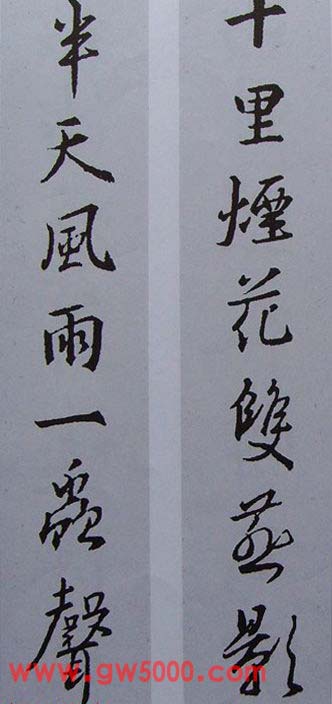 十里煙花雙燕影
半天風雨一蟲聲
www.gw5000.com